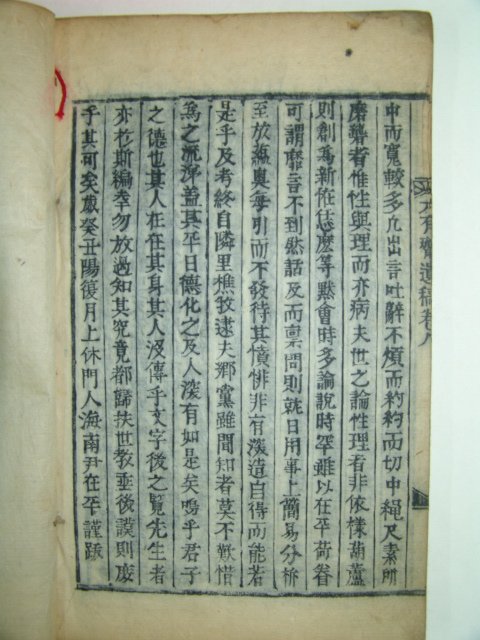 中而寬較多凡出言吐辭不煩而約約而切中繩尺素所
磨礱者惟性與理而亦病夫世之論性理者非依樣葫蘆
則創爲新 恁麽等黙會時多論說時罕雖以在平荷眷
可謂靡言不到然話及而稟問則就日用事上簡易分析
至放 奧每引而不發待其憤悱非有深造自得而能若
是乎及考終自隣里樵牧逮夫鄕黨雖聞知者莫不歎惜
爲之流涕盖其平日德化之及人深有如是矣嗚乎君子
之德也其人在在其身其人沒傳乎文字後之覽先生者
亦於斯編幸勿放過知其究竟都歸扶世敎垂後謨則庶
乎其可矣歲癸丑陽復月上休門人海南尹在平謹跋
有齋遺稿卷八